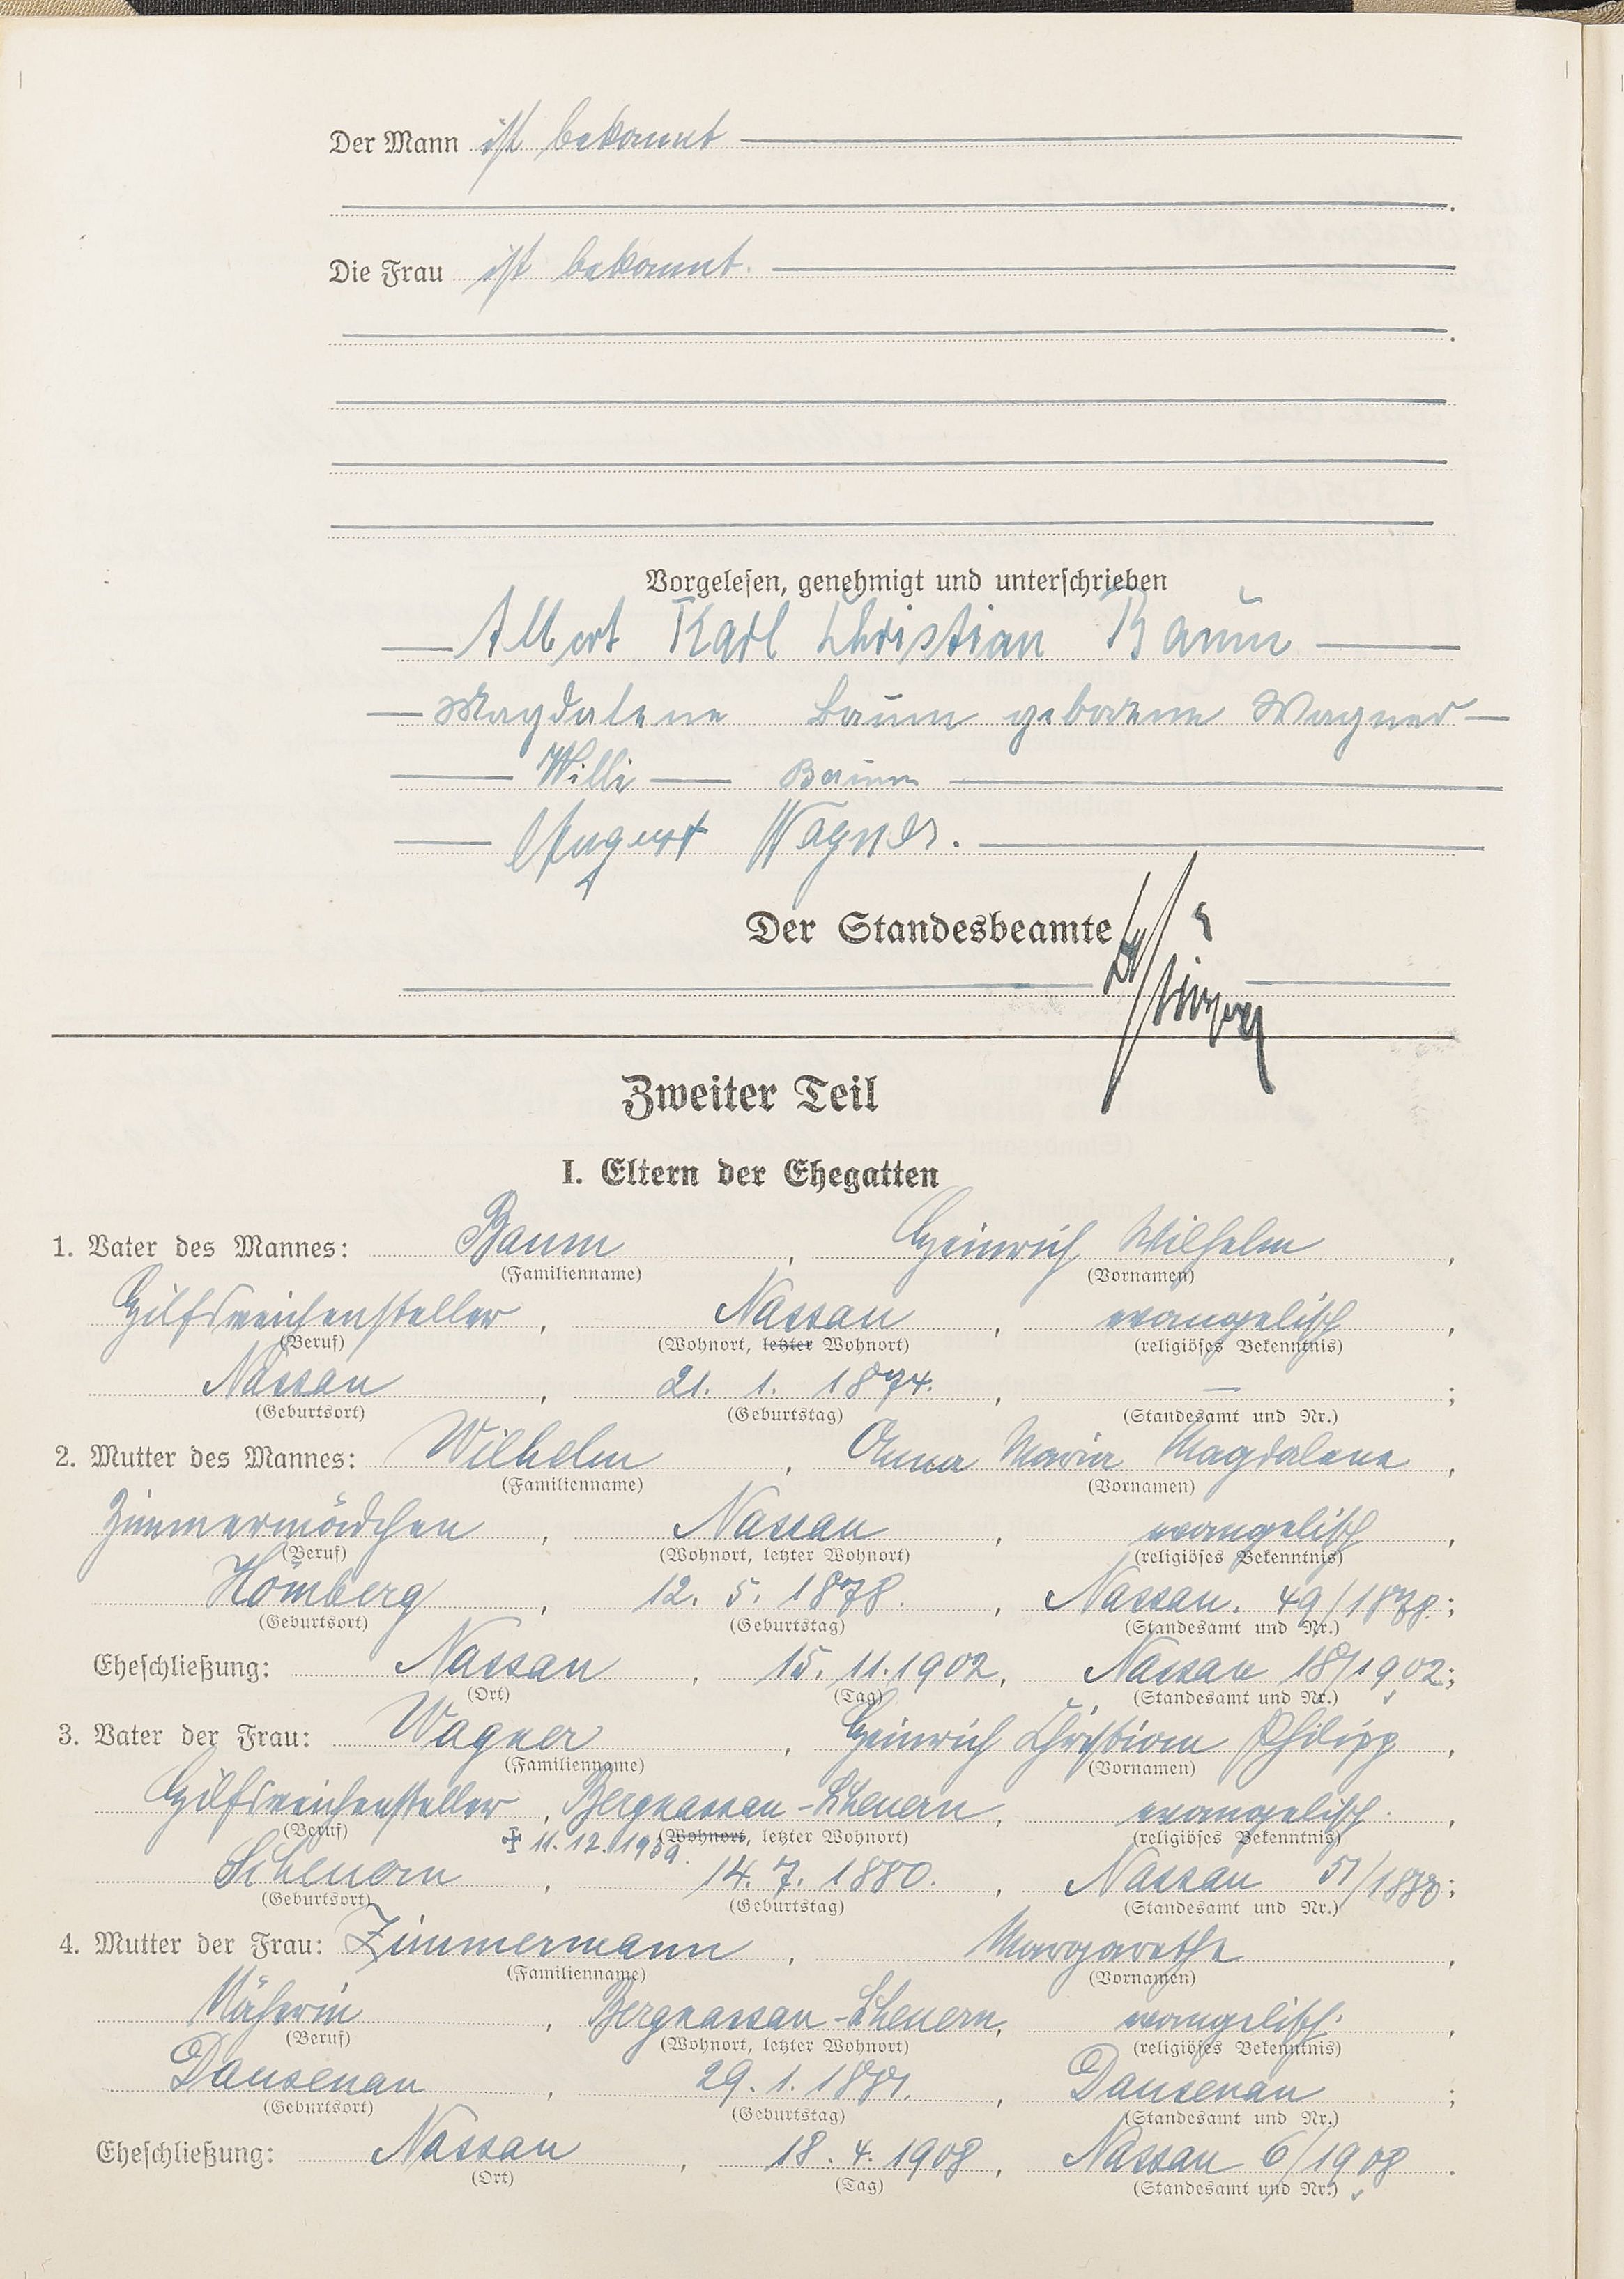 Der Mann ist bekannt
Die Frau ist bekannt.
Vorgelesen, genehmigt und unterschrieben
Albert Karl Christian Baum
Magdalene Baum geborene Wagner
Willi Baum
August Wagner.
Der Standesbeamte
Zweiter Teil
I. Eltern der Ehegatten
1. Vater des Mannes: Baum, Heinrich Wilhelm,
(Familienname) (Vornamen)
Hilfsweichensteller, Nassau, evangelisch,
(Beruf) (Wohnort, letzter Wohnort) (religiöses Bekenntnis)
Nassau, 21. 1. 1874., —;
(Geburtsort) (Geburtstag) (Standesamt und Nr.)
2. Mutter des Mannes: Wilhelm, Anna Maria Magdalene,
(Familienname) (Vornamen)
Zimmermädchen, Nassau, evangelisch,
(Beruf) (Wohnort, letzter Wohnort) (religiöses Bekenntnis)
Hömberg, 12. 5. 1878., Nassau. 49/1878.;
(Geburtsort) (Geburtstag) (Standesamt und Nr.)
Eheschließung: Nassau, 15. 11. 1902, Nassau 18/1902;
(Ort) (Tag) (Standesamt und Nr.)
3. Vater der Frau: Wagner, Heinrich Christian Philipp,
(Familienname) (Vornamen)
Hilfsweichensteller, Bergnassau-Scheuern, evangelisch.,
(Beruf) (Wohnort, letzter Wohnort) (religiöses Bekenntnis)
11. 12. 1959.
Scheuern, 14. 7. 1880., Nassau 51/1880;
(Geburtsort) (Geburtstag) (Standesamt und Nr.)
4. Mutter der Frau: Zimmermann, Margarethe,
(Familienname) (Vornamen)
Näherin, Bergnassau-Scheuern, evangelisch.,
(Beruf) (Wohnort, letzter Wohnort) (religiöses Bekenntnis)
Dausenau, 29. 1. Dausenau;
(Geburtsort) (Geburtstag) (Standesamt und Nr.)
Eheschließung: Nassau, 18. 4. 1908, Nassau 6/1908.
(Ort) (Tag) (Standesamt und Nr.)